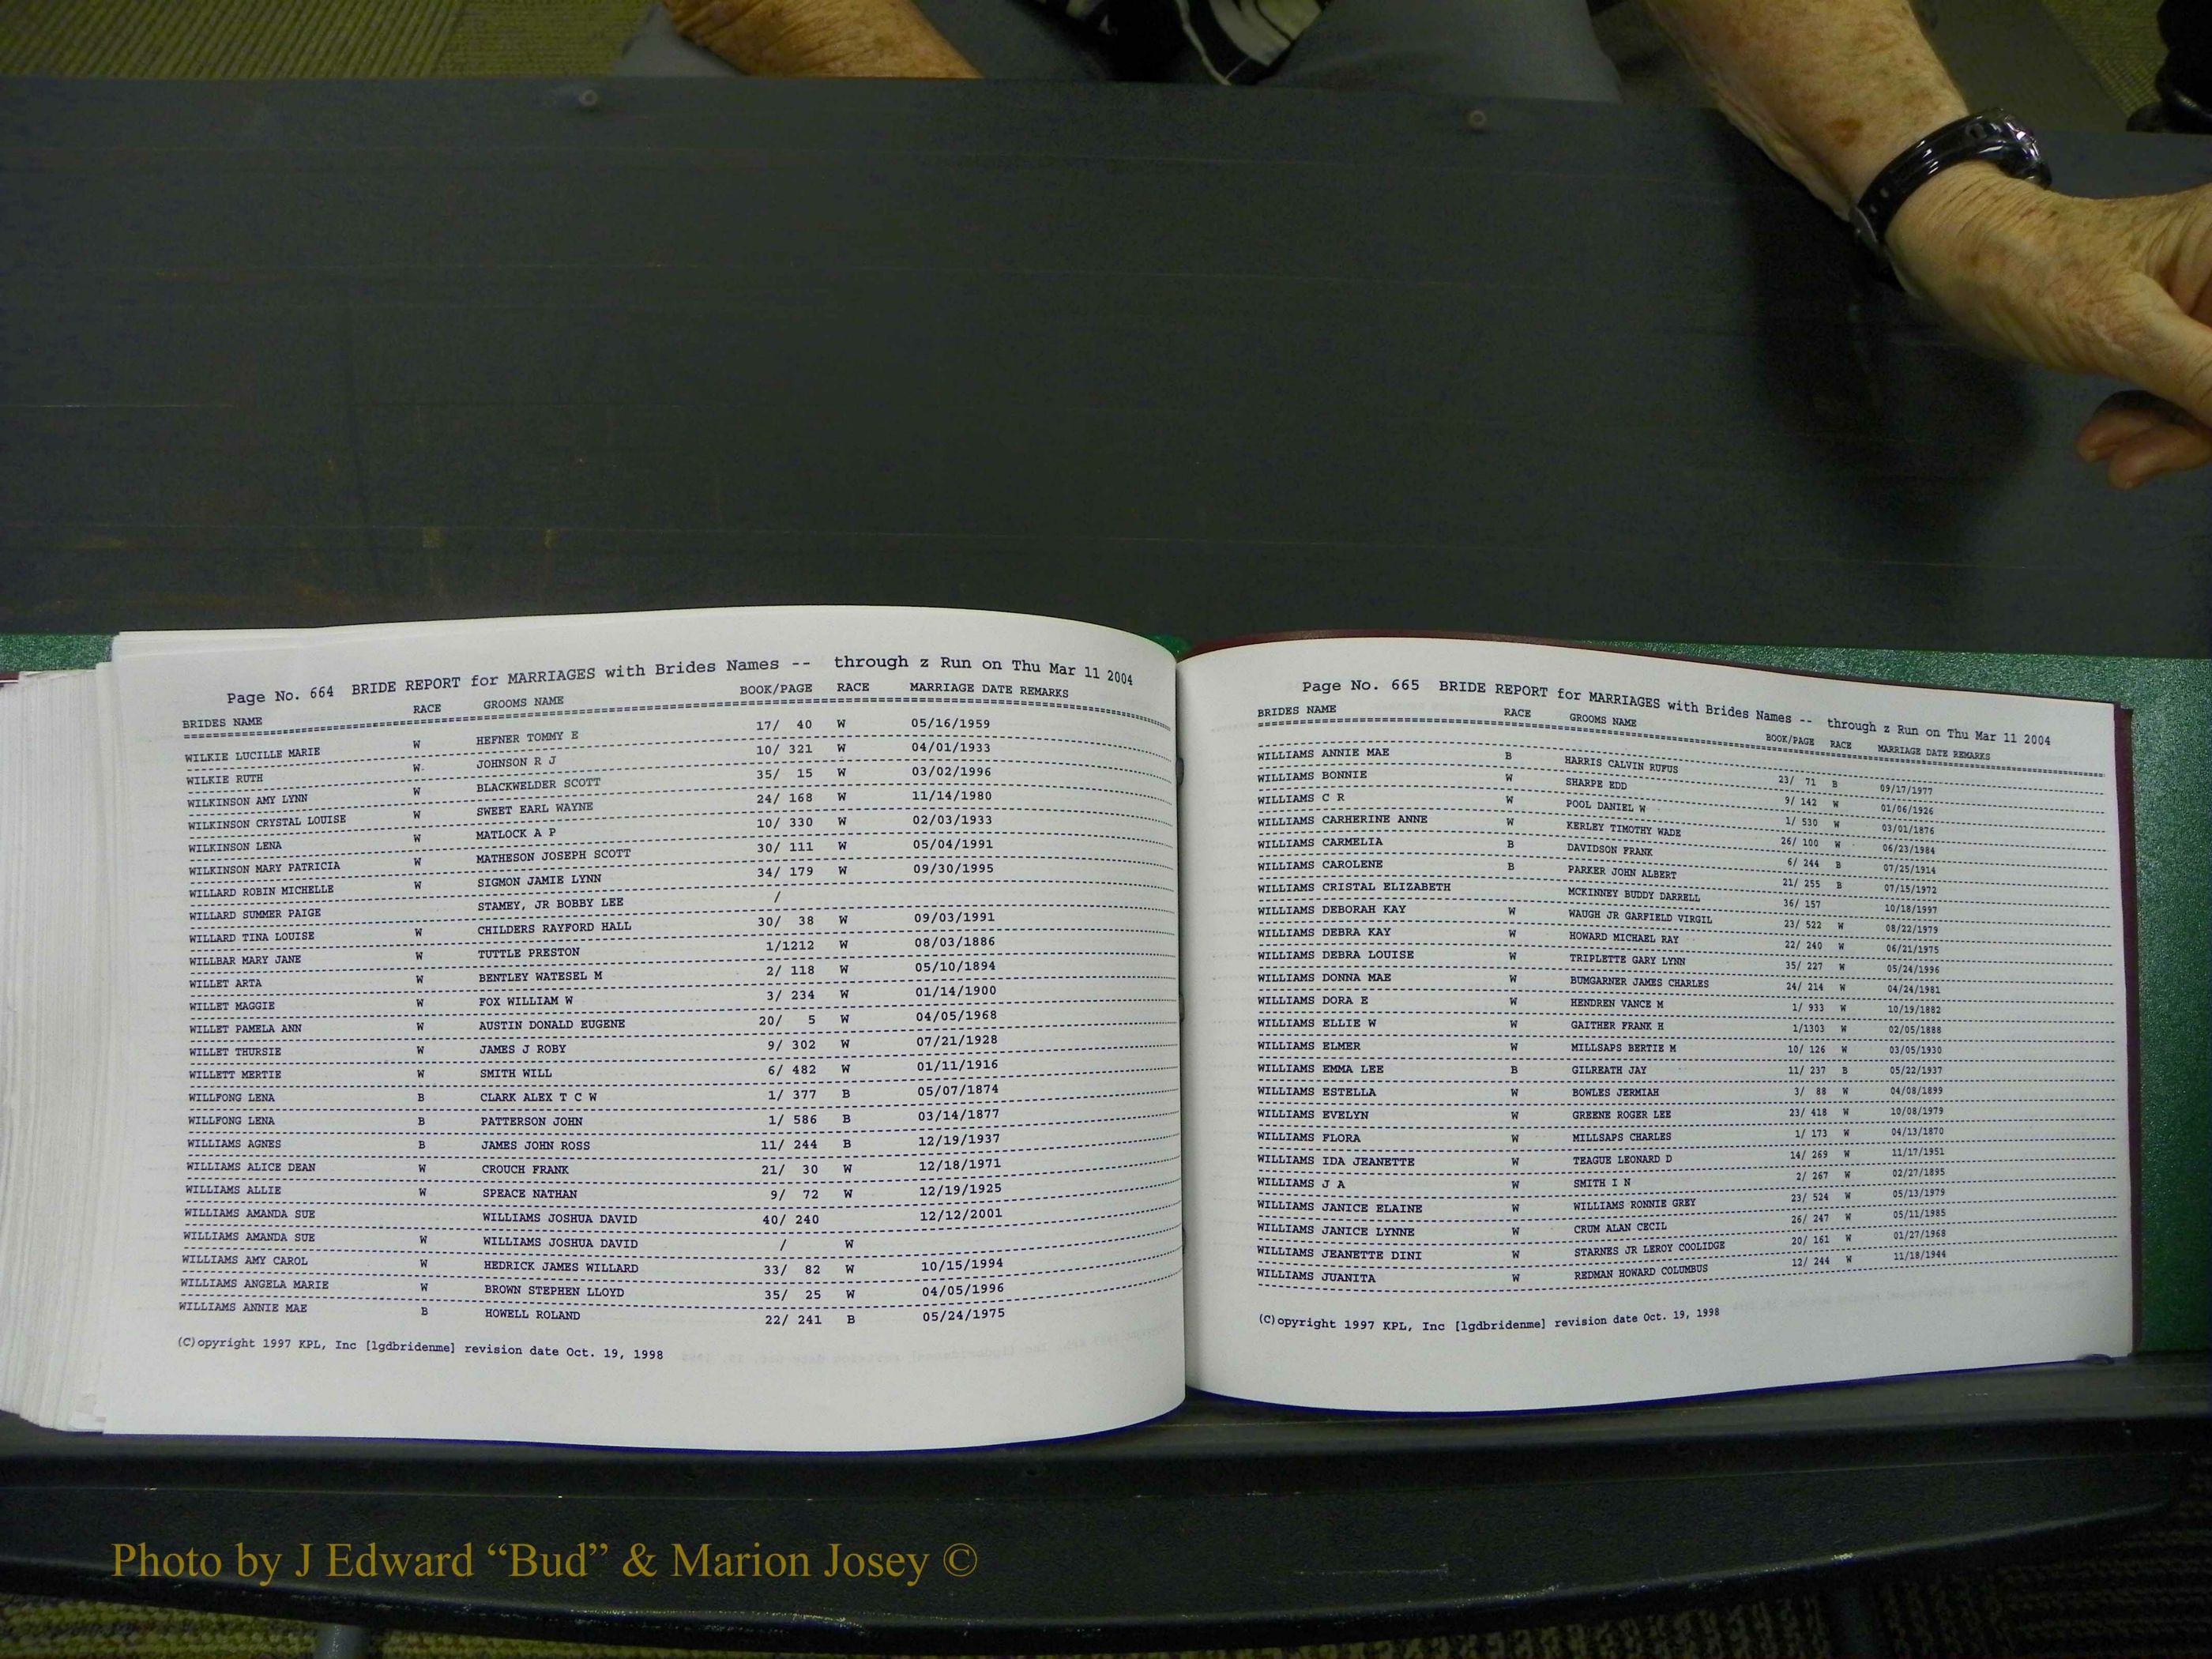 Page No. 664 BRIDE REPORT for MARRIAGES with Brides Names -- through z Run on Thu Mar 11 2004
BRIDES NAME RACE GROOMS NAME BOOK/PAGE RACE MARRIAGE DATE REMARKS
WILKIE LUCILLE MARIE W HEFNER TOMMY E 17/ 40 W 05/16/1959
WILKIE RUTH W JOHNSON R J 10/ 321 W 04/01/1933
WILKINSON AMY LYNN W BLACKWELDER SCOTT 35/ 15 W 03/02/1996
WILKINSON CRYSTAL LOUISE W SWEET EARL WAYNE 24/ 168 W 11/14/1980
WILKINSON LENA W MATLOCK A P 10/ 330 W 02/03/1933
WILKINSON MARY PATRICIA W MATHESON JOSEPH SCOTT 30/ 111 W 05/04/1991
WILLARD ROBIN MICHELLE W SIGMON JAMIE LYNN 34/ 179 W 09/30/1995
WILLARD SUMMER PAIGE STAMEY, JR BOBBY LEE /
WILLARD TINA LOUISE W CHILDERS RAYFORD HALL 30/ 38 W 09/03/1991
WILLBAR MARY JANE W TUTTLE PRESTON 1/1212 W 08/03/1886
WILLET ARTA W BENTLEY WATESEL M 2/ 118 W 05/10/1894
WILLET MAGGIE W FOX WILLIAM W 3/ 234 W 01/14/1900
WILLET PAMELA ANN W AUSTIN DONALD EUGENE 20/ 5 W 04/05/1968
WILLET THURSIE W JAMES J ROBY 9/ 302 W 07/21/1928
WILLETT MERTIE W SMITH WILL 6/ 482 W 01/11/1916
WILLFONG LENA B CLARK ALEX T C W 1/ 377 B 05/07/1874
WILLFONG LENA B PATTERSON JOHN 1/ 586 B 03/14/1877
WILLIAMS AGNES B JAMES JOHN ROSS 11/ 244 B 12/19/1937
WILLIAMS ALICE DEAN W CROUCH FRANK 21/ 30 W 12/18/1971
WILLIAMS ALLIE W SPEACE NATHAN 9/ 72 W 12/19/1925
WILLIAMS AMANDA SUE WILLIAMS JOSHUA DAVID 40/ 240 12/12/2001
WILLIAMS AMANDA SUE W WILLIAMS JOSHUA DAVID / W
WILLIAMS AMY CAROL W HEDRICK JAMES WILLARD 33/ 82 W 10/15/1994
WILLIAMS ANGELA MARIE W BROWN STEPHEN LLOYD 35/ 25 W 04/05/1996
WILLIAMS ANNIE MAE B HOWELL ROLAND 22/ 241 B 05/24/1975
(C)opyright 1997 KPL, Inc [lgdbridenme] revision date Oct. 19, 1998
Page No. 665 BRIDE REPORT for MARRIAGES with Brides Names -- through z Run on Thu Mar 11 2004
BRIDES NAME RACE GROOMS NAME BOOK/PAGE RACE MARRIAGE DATE REMARKS
WILLIAMS ANNIE MAE B HARRIS CALVIN RUFUS 23/ 71 B 09/17/1977
WILLIAMS BONNIE W SHARPE EDD 9/ 142 W 01/06/1926
WILLIAMS C R W POOL DANIEL W 1/ 530 W 03/01/1876
WILLIAMS CARHERINE ANNE W KERLEY TIMOTHY WADE 26/ 100 W 06/23/1984
WILLIAMS CARMELIA B DAVIDSON FRANK 6/ 244 B 07/25/1914
WILLIAMS CAROLENE B PARKER JOHN ALBERT 21/ 255 B 07/15/1972
WILLIAMS CRISTAL ELIZABETH MCKINNEY BUDDY DARRELL 36/ 157 10/18/1997
WILLIAMS DEBORAH KAY W WAUGH JR GARFIELD VIRGIL 23/ 522 W 08/22/1979
WILLIAMS DEBRA KAY W HOWARD MICHAEL RAY 22/ 240 W 06/21/1975
WILLIAMS DEBRA LOUISE W TRIPLETTE GARY LYNN 35/ 227 W 05/24/1996
WILLIAMS DONNA MAE W BUMGARNER JAMES CHARLES 24/ 214 W 04/24/1981
WILLIAMS DORA E W HENDREN VANCE M 1/ 933 W 10/19/1882
WILLIAMS ELLIE W W GAITHER FRANK H 1/1303 W 02/05/1888
WILLIAMS ELMER W MILLSAPS BERTIE M 10/ 126 W 03/05/1930
WILLIAMS EMMA LEE B GILREATH JAY 11/ 237 B 05/22/1937
WILLIAMS ESTELLA W BOWLES JERMIAH 3/ 88 W 04/08/1899
WILLIAMS EVELYN W GREENE ROGER LEE 23/ 418 W 10/08/1979
WILLIAMS FLORA W MILLSAPS CHARLES 1/ 173 W 04/13/1870
WILLIAMS IDA JEANETTE W TEAGUE LEONARD D 14/ 269 W 11/17/1951
WILLIAMS J A W SMITH I N 2/ 267 W 02/27/1895
WILLIAMS JANICE ELAINE W WILLIAMS RONNIE GREY 23/ 524 W 05/13/1979
WILLIAMS JANICE LYNNE W CRUM ALAN CECIL 26/ 247 W 05/11/1985
WILLIAMS JEANETTE DINI W STARNES JR LEROY COOLIDGE 20/ 161 W 01/27/1968
WILLIAMS JUANITA W REDMAN HOWARD COLUMBUS 12/ 244 W 11/18/1944
(C)opyright 1997 KPL, Inc [lgdbridenme] revision date Oct. 19, 1998
Photo by J Edward “Bud” & Marion Josey ©